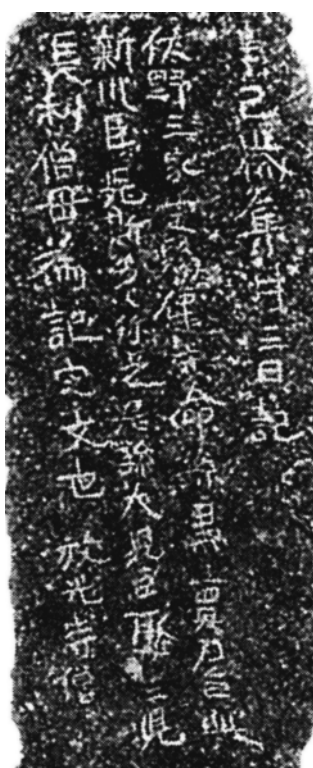 辛巳歳集月三日記
佐野三家定賜健守命孫黒売刀自此
新川臣児斯多々弥足尼孫大児臣娶生児
長利僧母為記定文也 放光寺僧